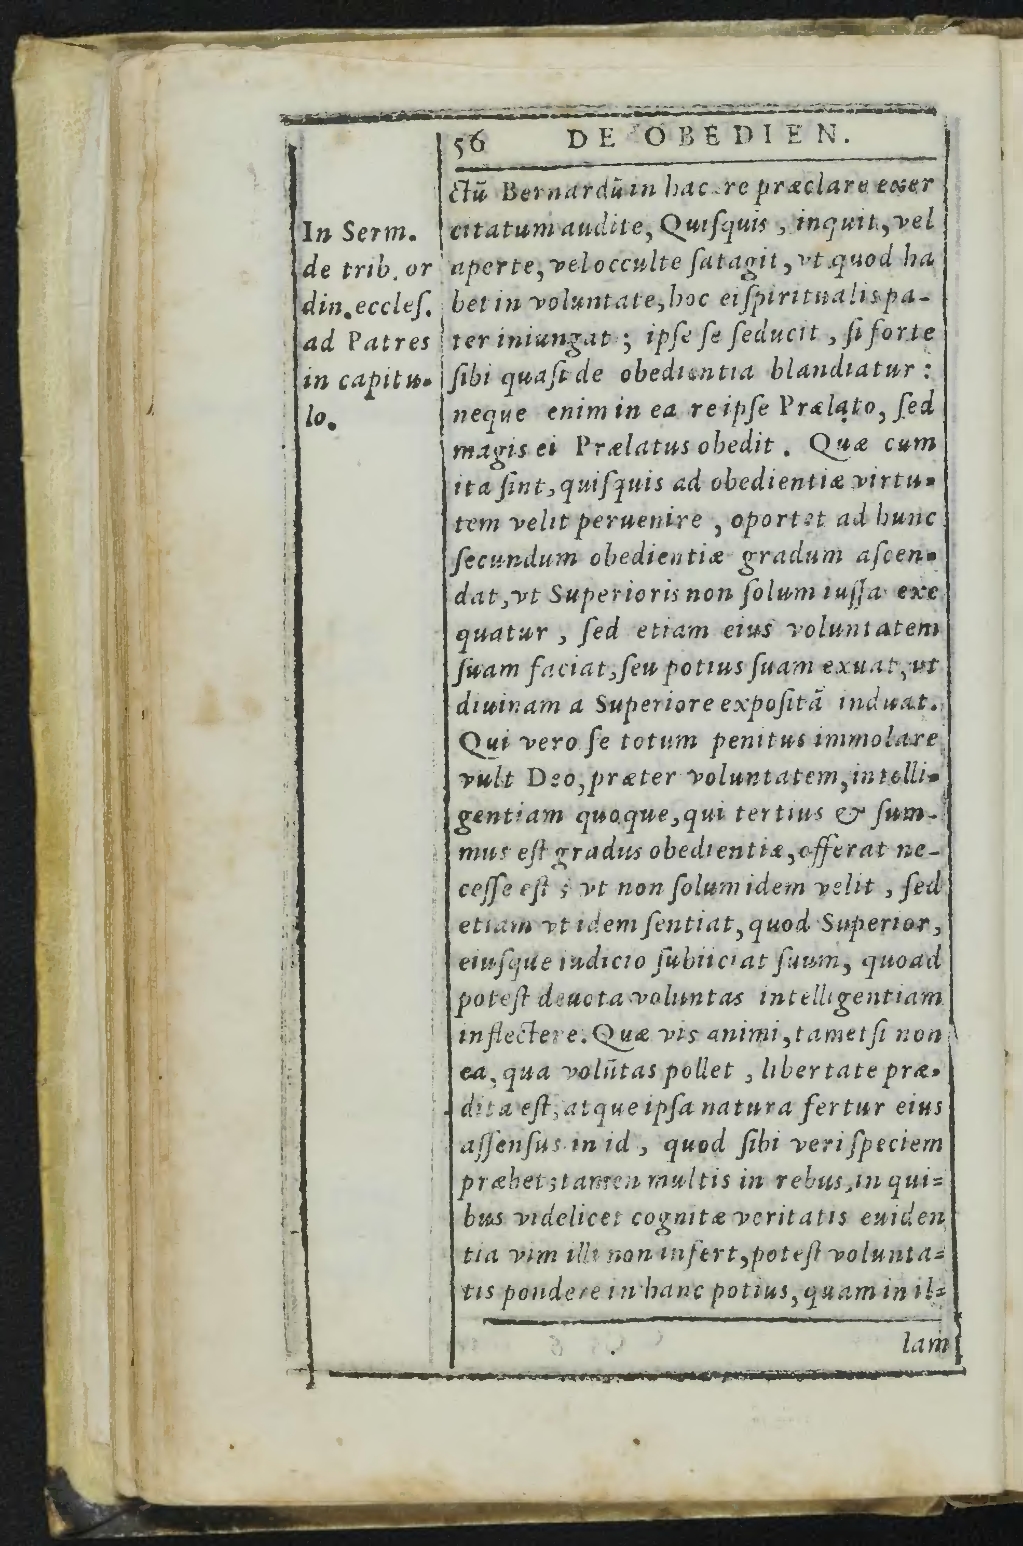 56 DE OBEDIEN.
In Serm.
de trib. or
din. eccles.
ad Patres
in capitu-
lo.
ctū Bernardū in hac re præclare exer
citatum audite, Quiſquis, inquit, vel
aperte, vel occulte ſatagit, vt quod ha
bet in voluntate, hoc ei ſpiritualis pa-
ter iniungat; ipſe ſe ſeducit, ſi forte
ſibi quaſi de obedientia blandiatur:
neque enim in ea re ipſe Prælato, ſed
magis ei Prælatus obedit. Quæ cum
ita ſint, quiſquis ad obedientiæ virtu-
tem velit peruenire, oportet ad hunc
ſecundum obedientiæ gradum aſcen-
dat, vt Superioris non ſolum iuſſa exe
quatur, ſed etiam eius voluntatem
ſuam faciat, ſeu potius ſuam exuat, vt
diuinam a Superiore expoſitā induat.
Qui vero ſe totum penitus immolare
vult Deo, præter voluntatem, intelli-
gentiam quoque, qui tertius & ſum-
mus eſt gradus obedientiæ, offerat ne-
ceſſe eſt; vt non ſolum idem velit, ſed
etiam vt idem ſentiat, quod Superior,
eiuſque iudicio ſubiiciat ſuum, quoad
poteſt deuota voluntas intelligentiam
inflectere. Quæ vis animi, tametſi non
ea, qua volūtas pollet, libertate præ-
dita eſt, atque ipſa natura fertur eius
aſſenſus in id, quod ſibi veri ſpeciem
præbet; tamen multis in rebus, in qui=
bus videlicet cognitæ veritatis euiden
tia vim illi non infert, poteſt volunta=
tis pondere in hanc potius, quam in il=
lam